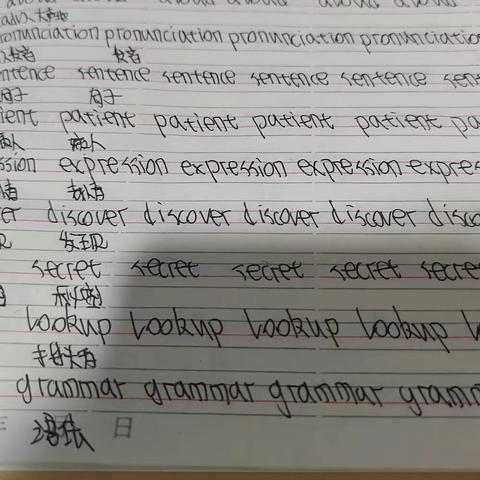 aloud aloud aloud aloud aloud
pronunciation pronunciation pronunciation pronunciation
发音 发音
sentence sentence sentence sentence sentence sent
句子 句子
ient patient patient patient patient pa
病人 病人
ssion expression expression expression expres
er discover discover discover discover disco
现 发现
secret secret secret secret secre
秘密
lookup lookup lookup lookup l
grammar grammar grammar gramm
语法 日